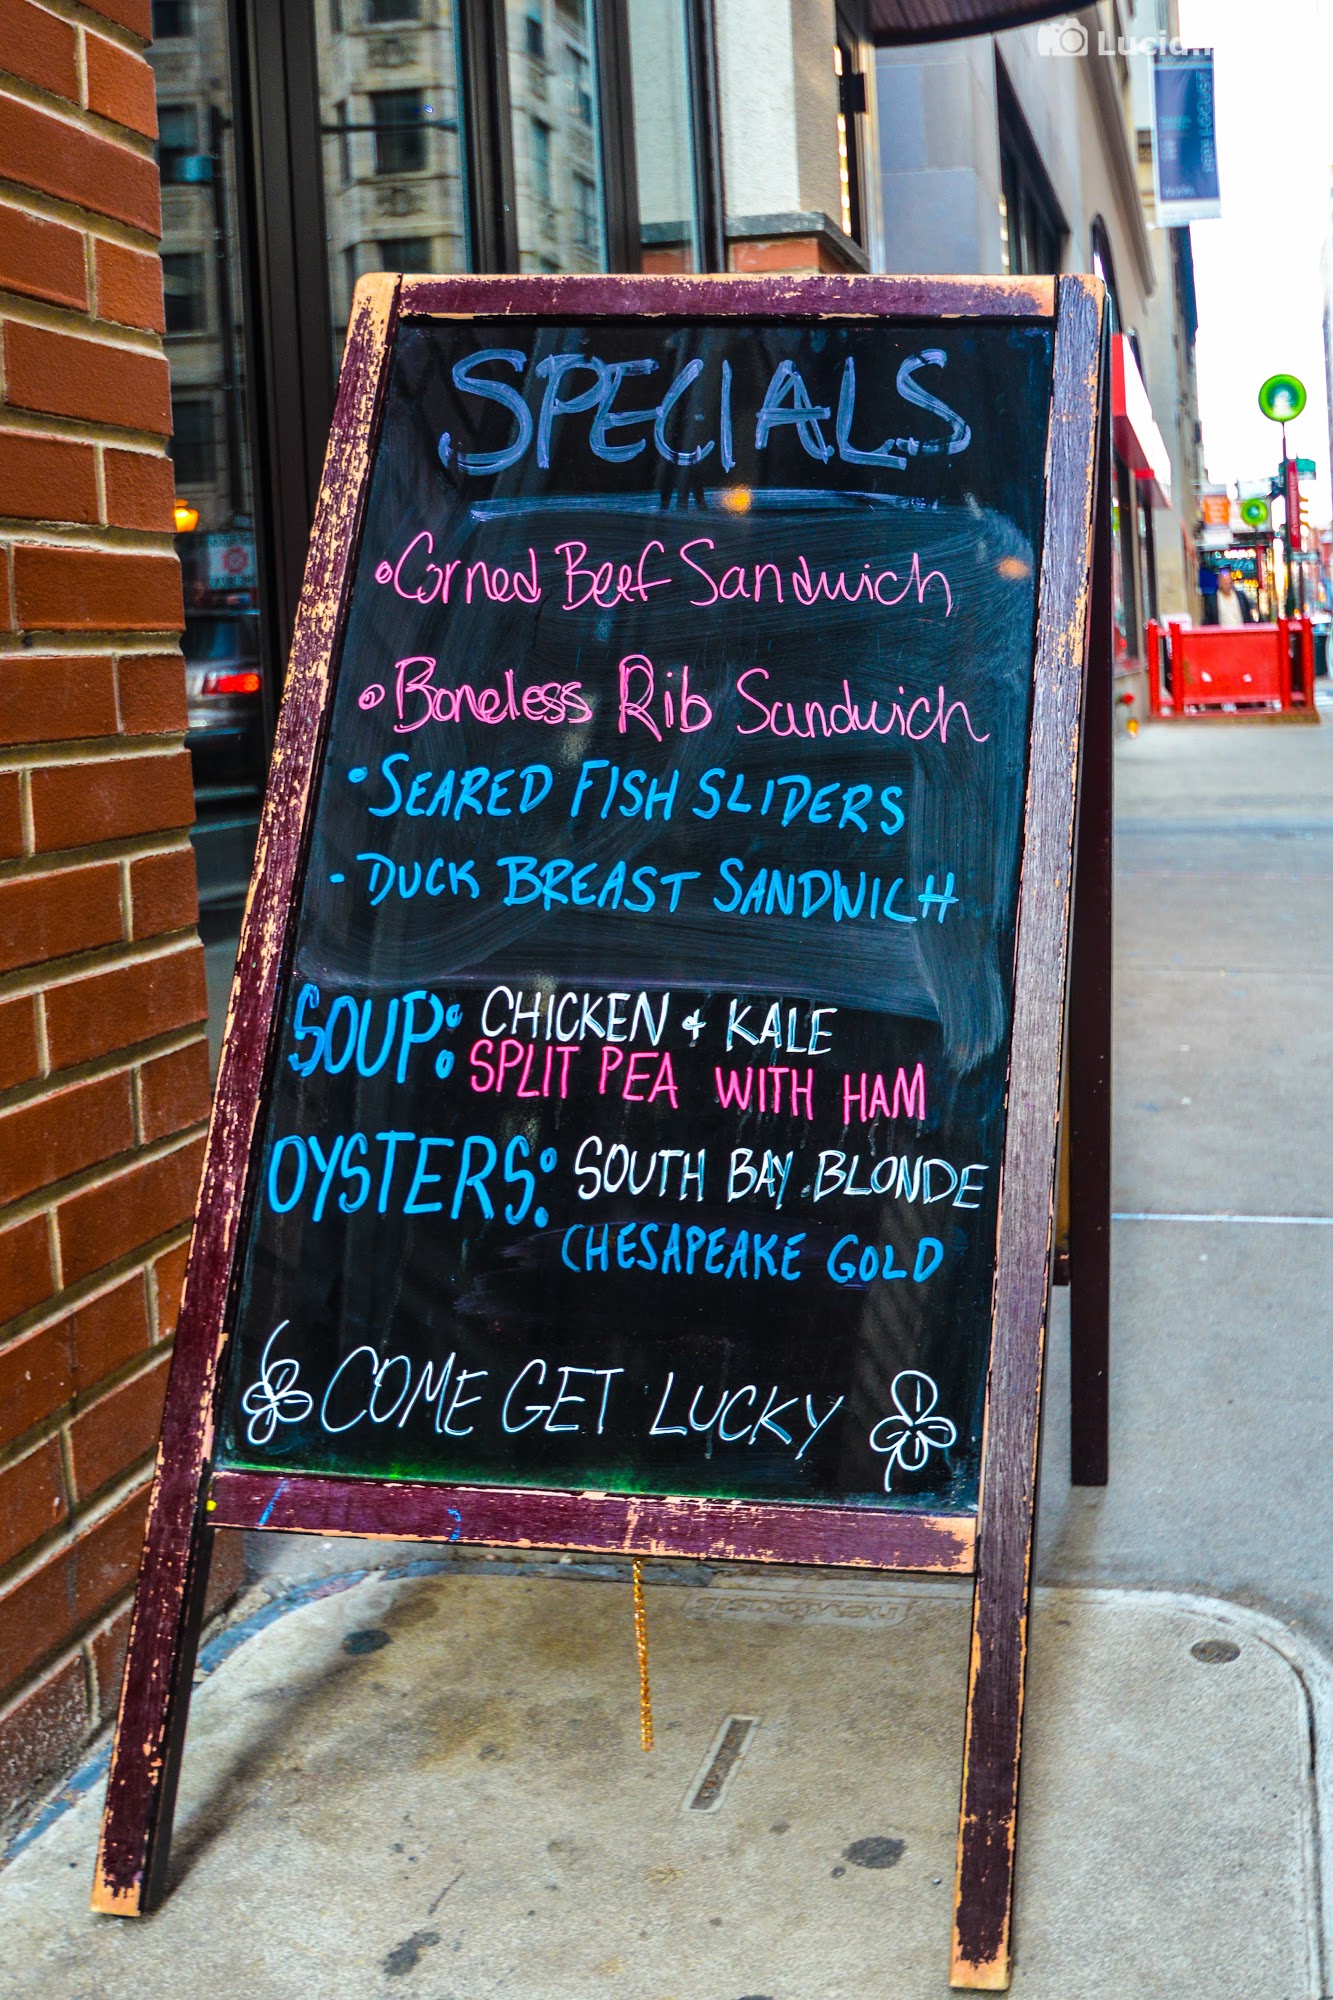 SPECIALS
• Corned Beef Sandwich
• Boneless Rib Sandwich
• SEARED FISH SLIDERS
- DUCK BREAST SANDWICH
SOUP: CHICKEN + KALE
SPLIT PEA WITH HAM
OYSTERS: SOUTH BAY BLONDE
CHESAPEAKE GOLD
COME GET LUCKY